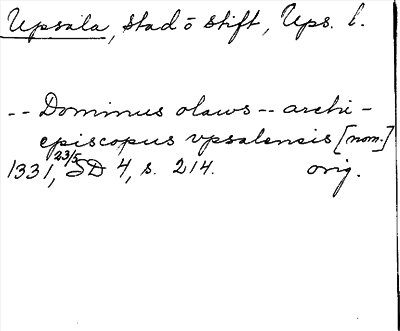 Upsala, stad o stift, Ups. l.
-- Dominus olaws -- archi-
episcopus vpsalensis [nom.]
1331, 23/5 SD 4, s. 214. orig.